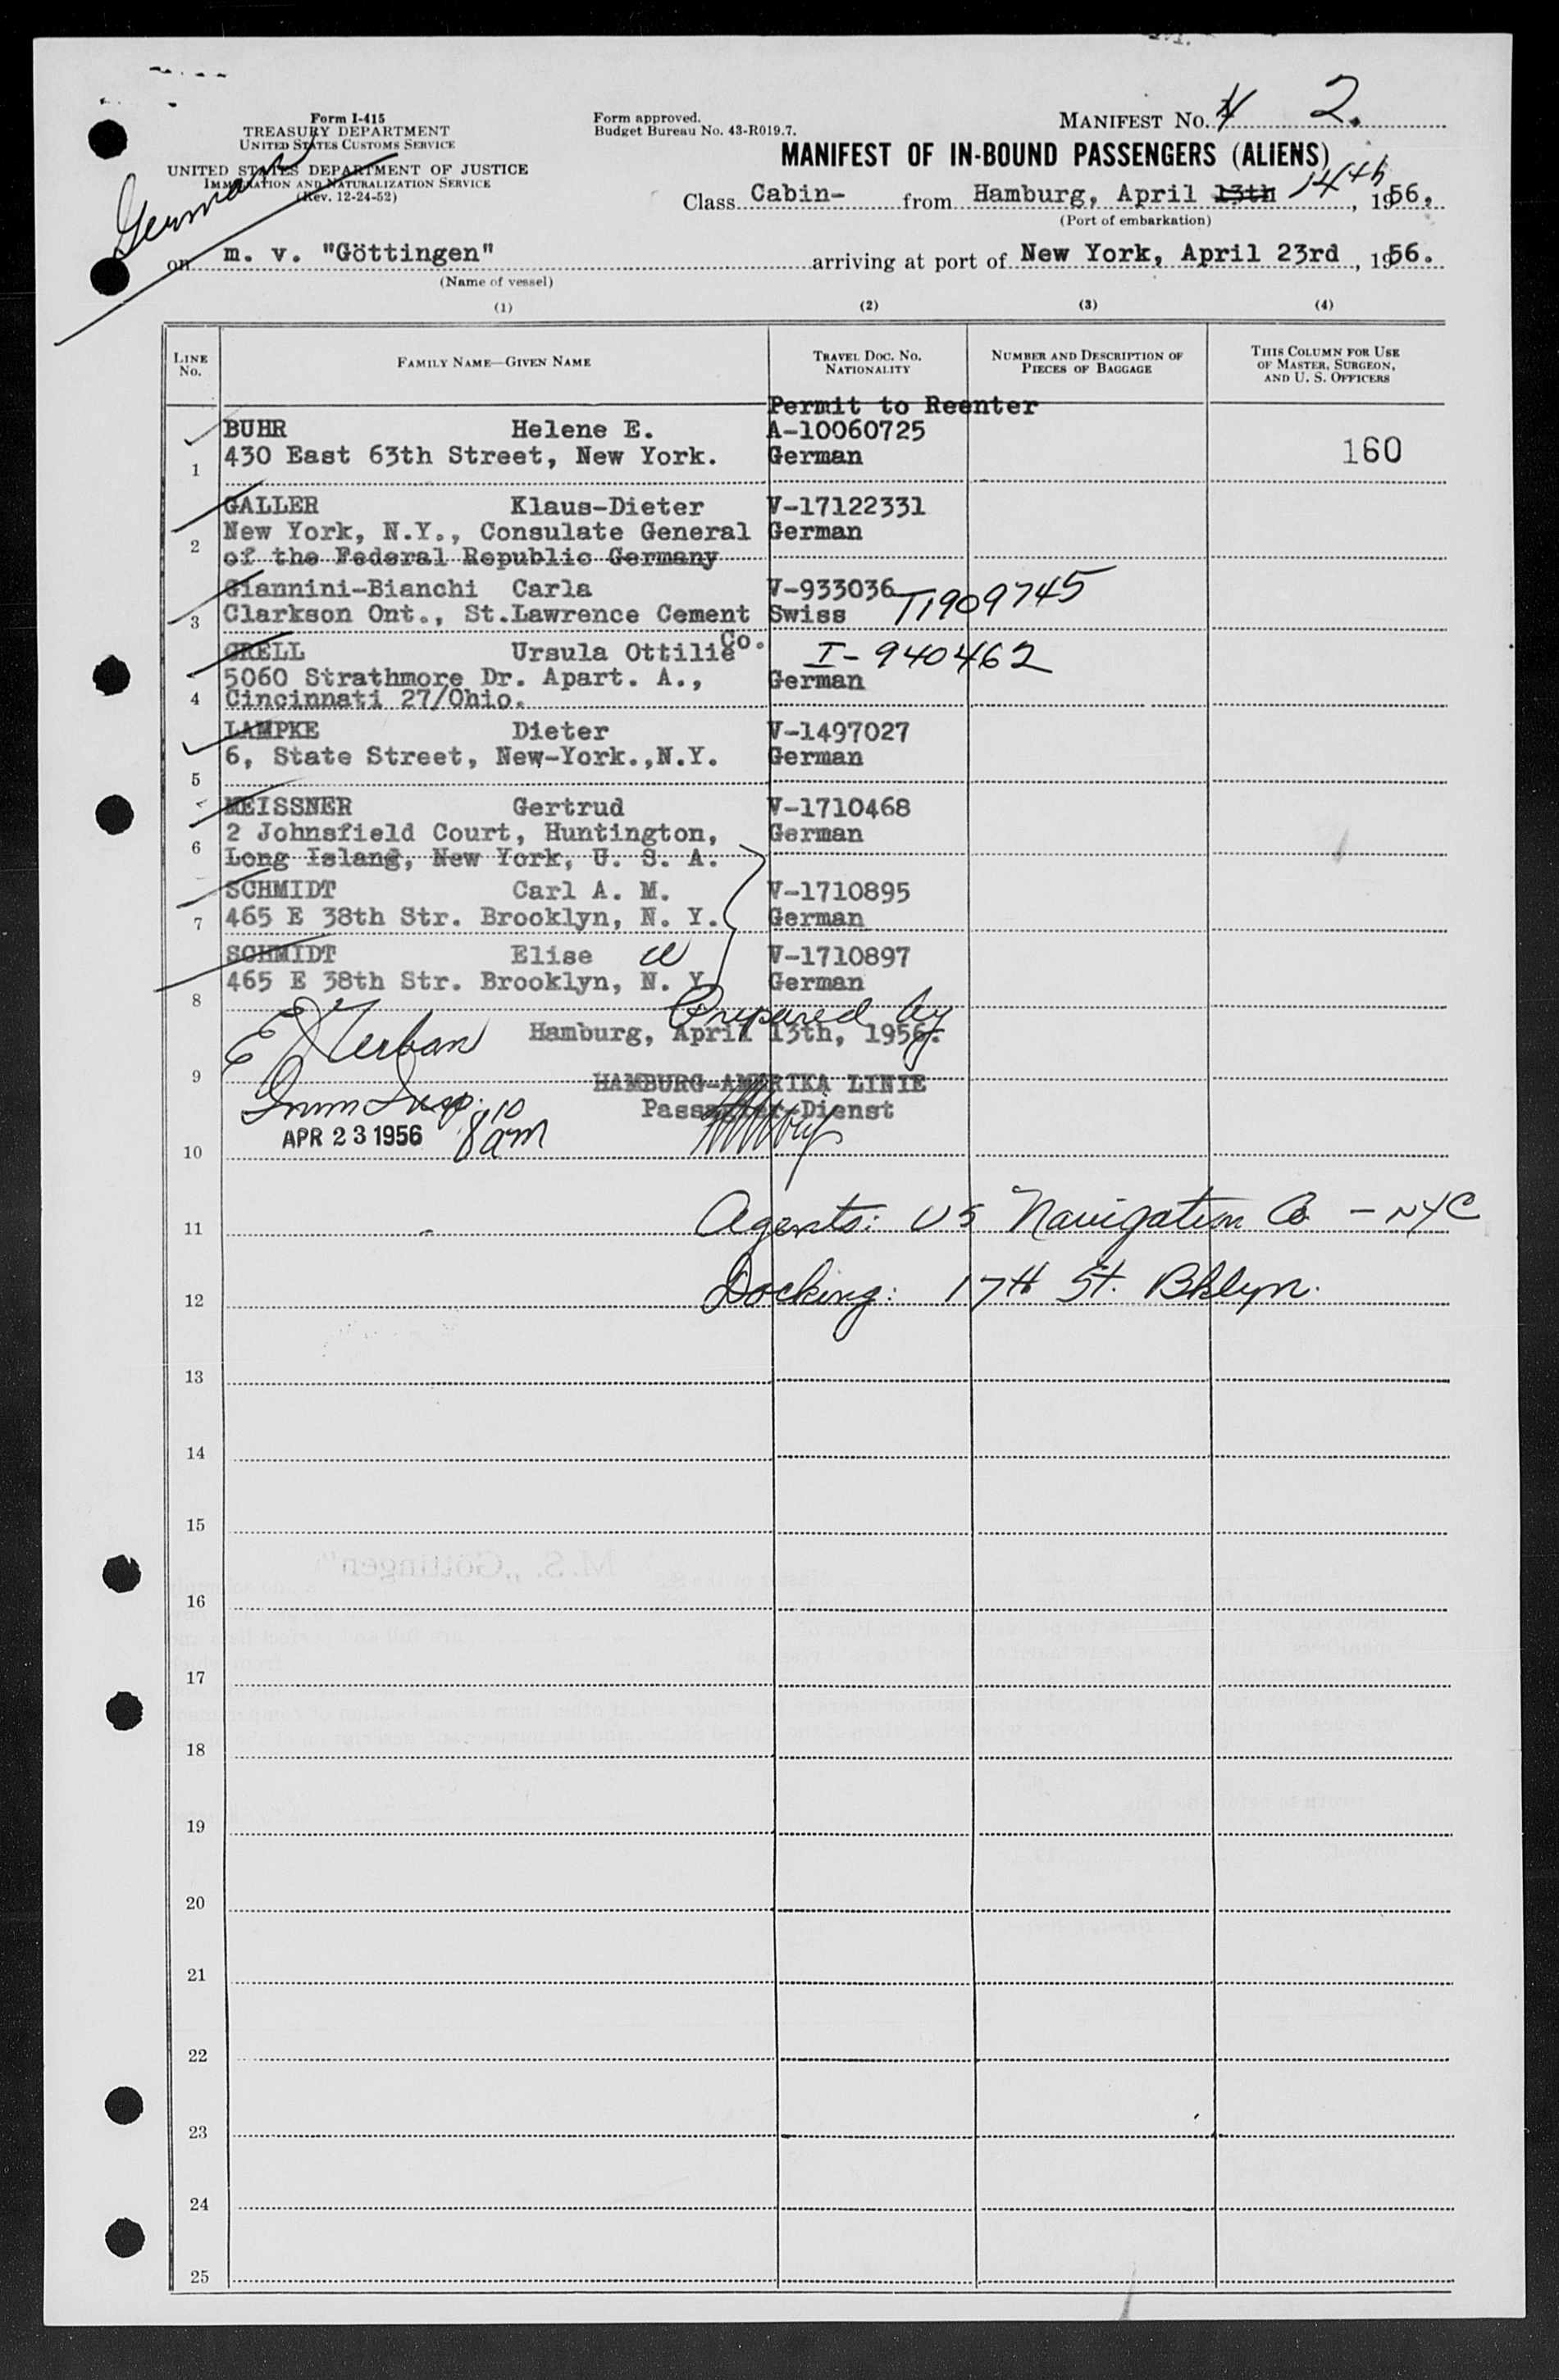 Form I-415
TREASURY DEPARTMENT
UNITED STATES CUSTOMS SERVICE
UNITED STATES DEPARTMENT OF JUSTICE
IMMIGRATION AND NATURALIZATION SERVICE
(Rev. 12-24-52)
German
Form approved.
Budget Bureau No. 43-R019.7.
MANIFEST No. 2.
MANIFEST OF IN-BOUND PASSENGERS (ALIENS)
Class Cabin- from Hamburg, April 13th 14th, 1956.
(Port of embarkation)
on m. v. "Göttingen" arriving at port of New York, April 23rd, 1956.
(Name of vessel)
(1) (2) (3) (4)
LINE No. FAMILY NAME—GIVEN NAME TRAVEL DOC. NO. NATIONALITY NUMBER AND DESCRIPTION OF PIECES OF BAGGAGE THIS COLUMN FOR USE OF MASTER, SURGEON, AND U. S. OFFICERS
Permit to Reenter
BUHR Helene E. A-10060725
1 430 East 63th Street, New York. German 160
GALLER Klaus-Dieter V-17122331
2 New York, N.Y., Consulate General German
of the Federal Republic Germany
Giannini-Bianchi Carla V-933036 T1909745
3 Clarkson Ont., St.Lawrence Cement Co. Swiss
GRELL Ursula Ottilie I-940462
5060 Strathmore Dr. Apart. A., German
4 Cincinnati 27/Ohio.
LAMPKE Dieter V-1497027
6, State Street, New-York.,N.Y. German
5
MEISSNER Gertrud V-1710468
2 Johnsfield Court, Huntington, German
6 Long Island, New York, U. S. A.
SCHMIDT Carl A. M. V-1710895
7 465 E 38th Str. Brooklyn, N. Y. German
SCHMIDT Elise V-1710897
465 E 38th Str. Brooklyn, N. Y. German
8
Prepared by
Hamburg, April 13th, 1956.
9 HAMBURG-AMERIKA LINIE
Imm Insp. Passagier-Dienst
APR 23 1956 8 10 am
10
11 Agents: US Navigation Co - NYC
12 Docking: 17th St. Bklyn.
13
14
15
M.S. „Göttingen"
16
17
18
19
20
21
22
23
24
25